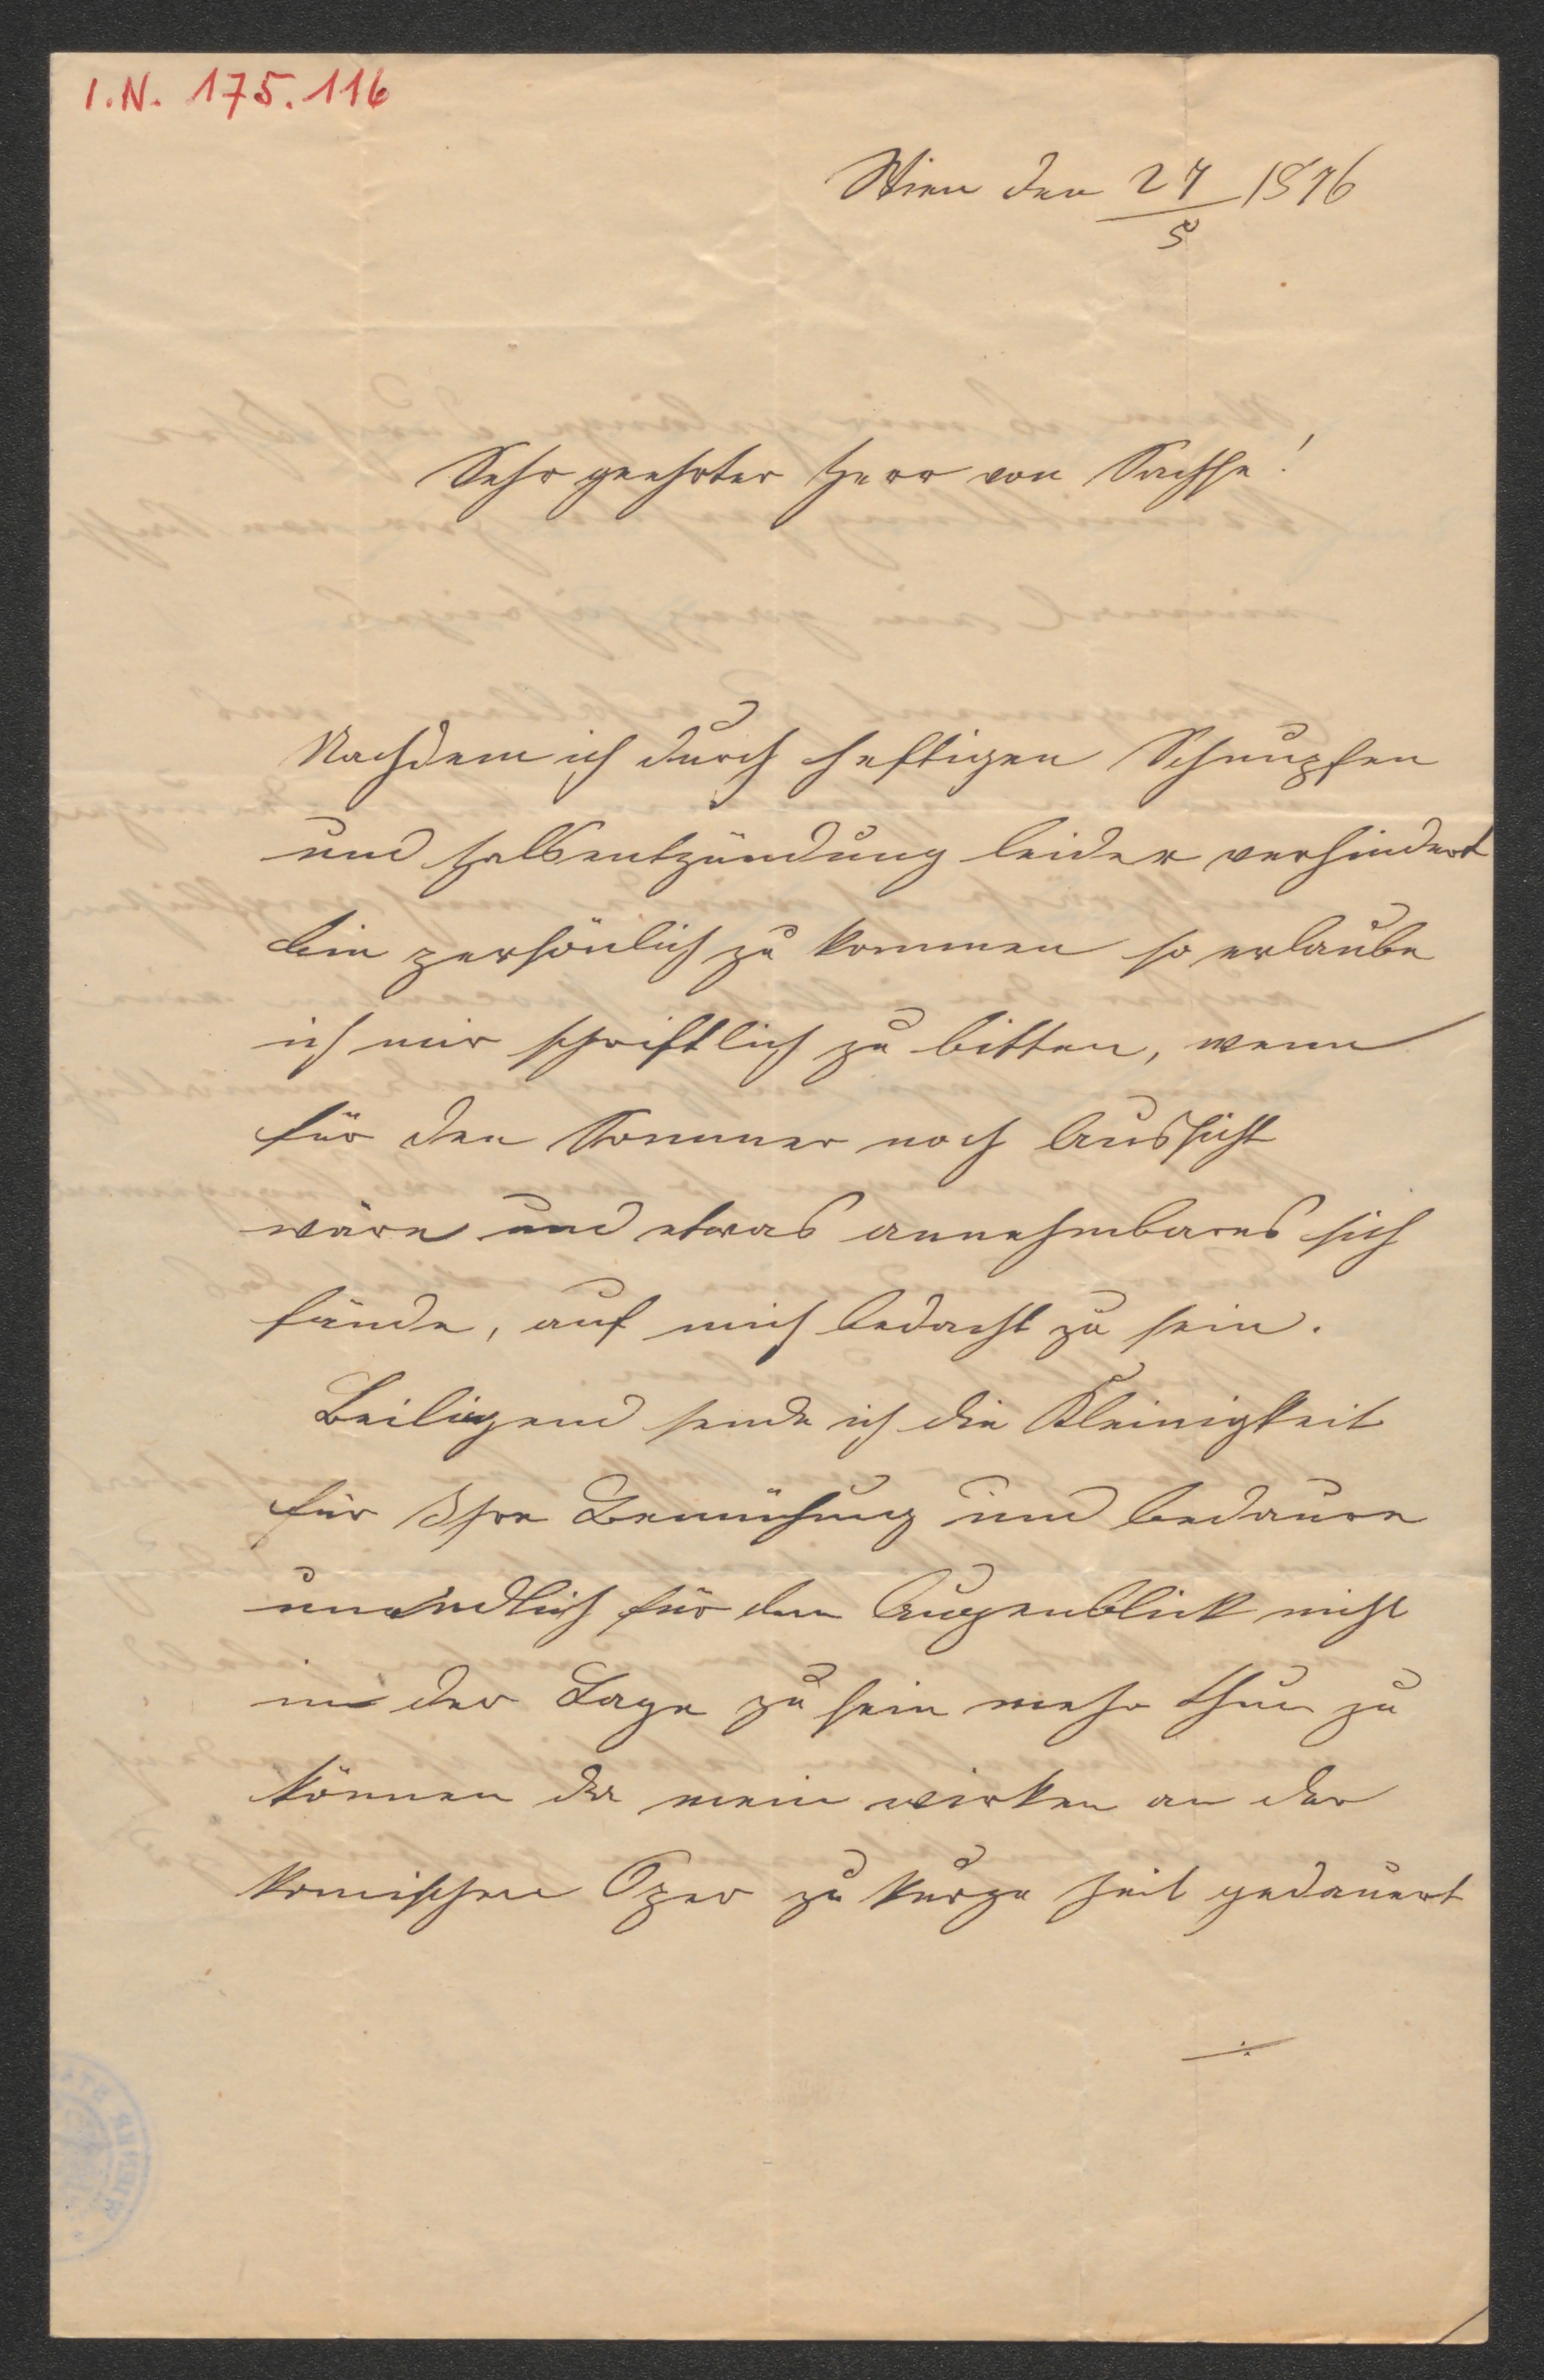 I.N. 175.116
Wien den 27/5 1876
Sehr geehrter Herr von Sachse!
Nachdem ich durch heftigen Schnupfen
und Halsentzündung leider verhindert
bin persönlich zu kommen so erlaube
ich mir schriftlich zu bitten, wenn
für den Sommer noch Aussicht
wäre und etwas annehmbares sich
fände, auf mich bedacht zu sein.
Beiliegend sende ich die Kleinigkeit
für Ihre Bemühung und bedaure
unendlich für den Augenblick nicht
in der Lage zu sein mehr thun zu
können da mein wirken an der
komischen Oper zu kurze Zeit gedauert